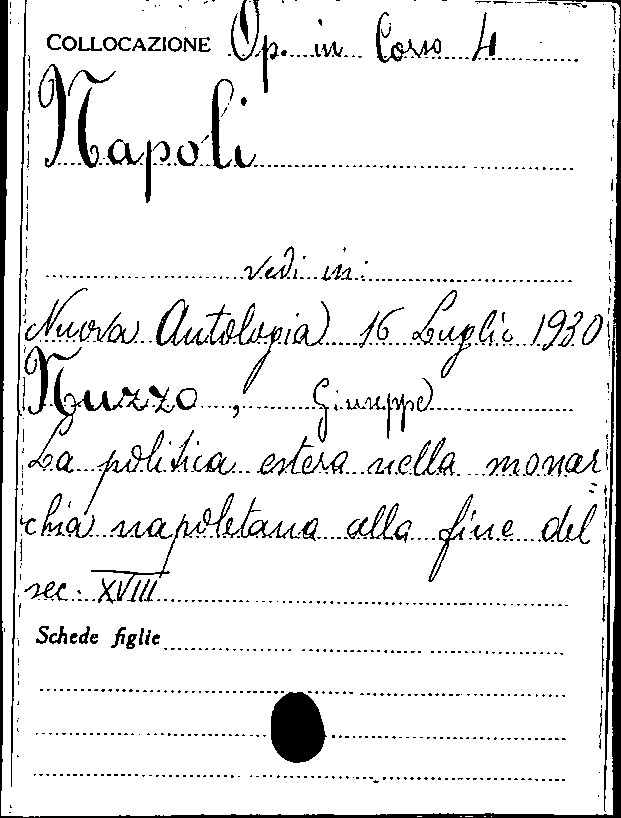 COLLOCAZIONE Op. in Corso 4
Napoli
vedi in:
Nuova Antologia 16 Luglio 1930
Nuzzo, Giuseppe
La politica estera nella monar=
chia napoletana alla fine del
sec. XVIII
Schede figlie